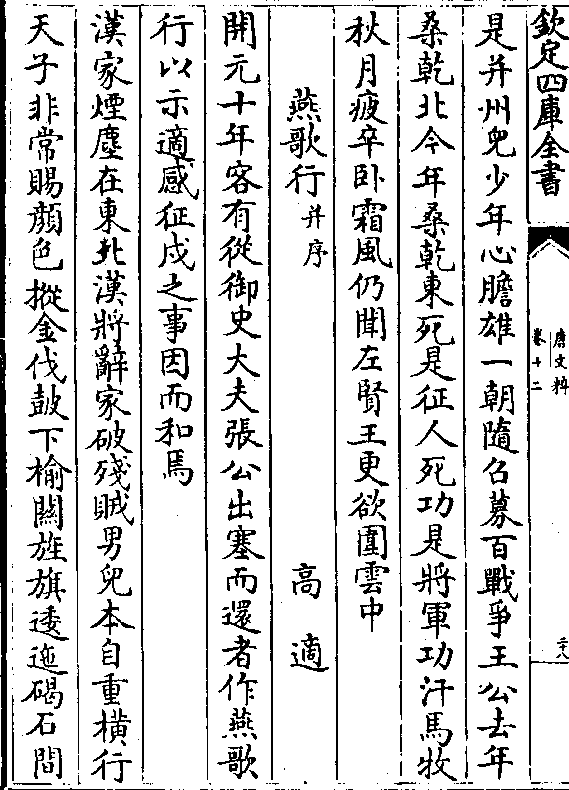 欽定四庫全書
唐文粹
卷十二
二十八
是并州兒少年心膽雄一朝隨召募百戰爭王公去年
桑乾北今年桑乾東死是征人死功是將軍功汗馬牧
秋月疲卒卧霜風仍聞左賢王更欲圍雲中
燕歌行并序 高適
開元十年客有從御史大夫張公出塞而還者作燕歌
行以示適感征戍之事因而和焉
漢家煙塵在東北漢將辭家破殘賊男兒本自重橫行
天子非常賜顔色摐金伐鼓下榆關旌旗逶迤碣石間